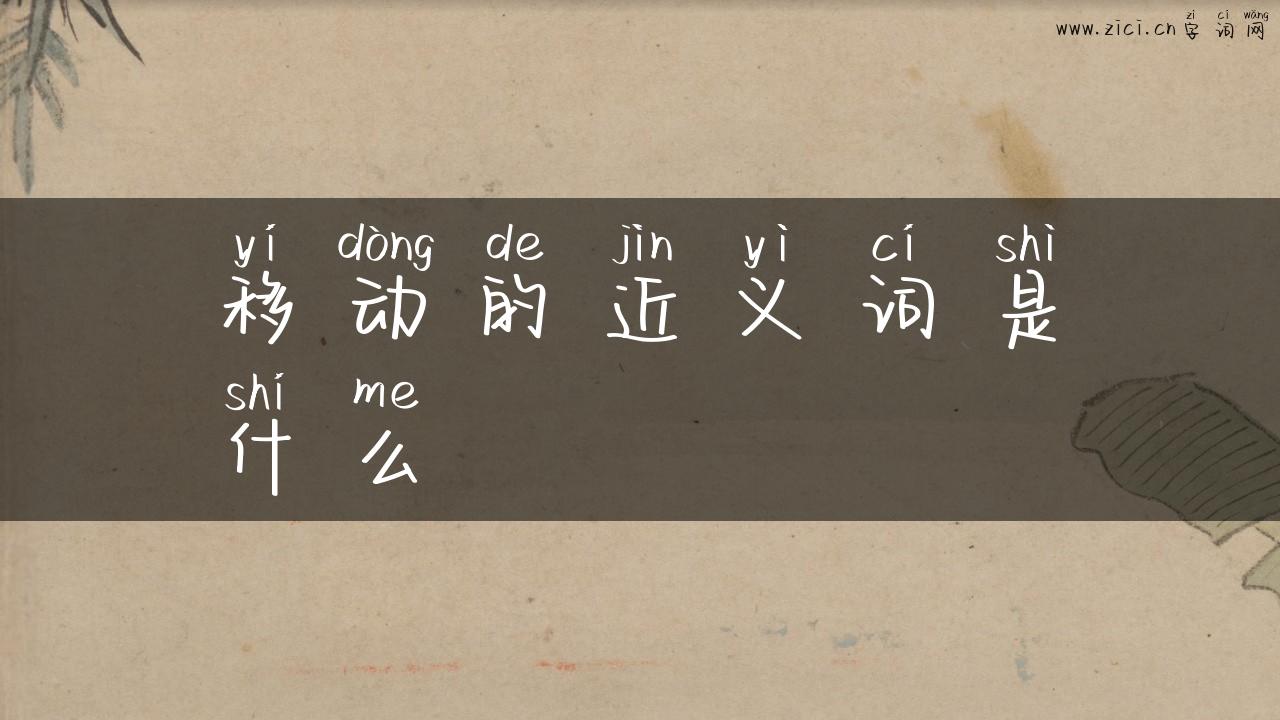 zì cí wǎng
www.zici.cn 字词网
yí dòng de jìn yì cí shì
移动的近义词是
shí me
什么